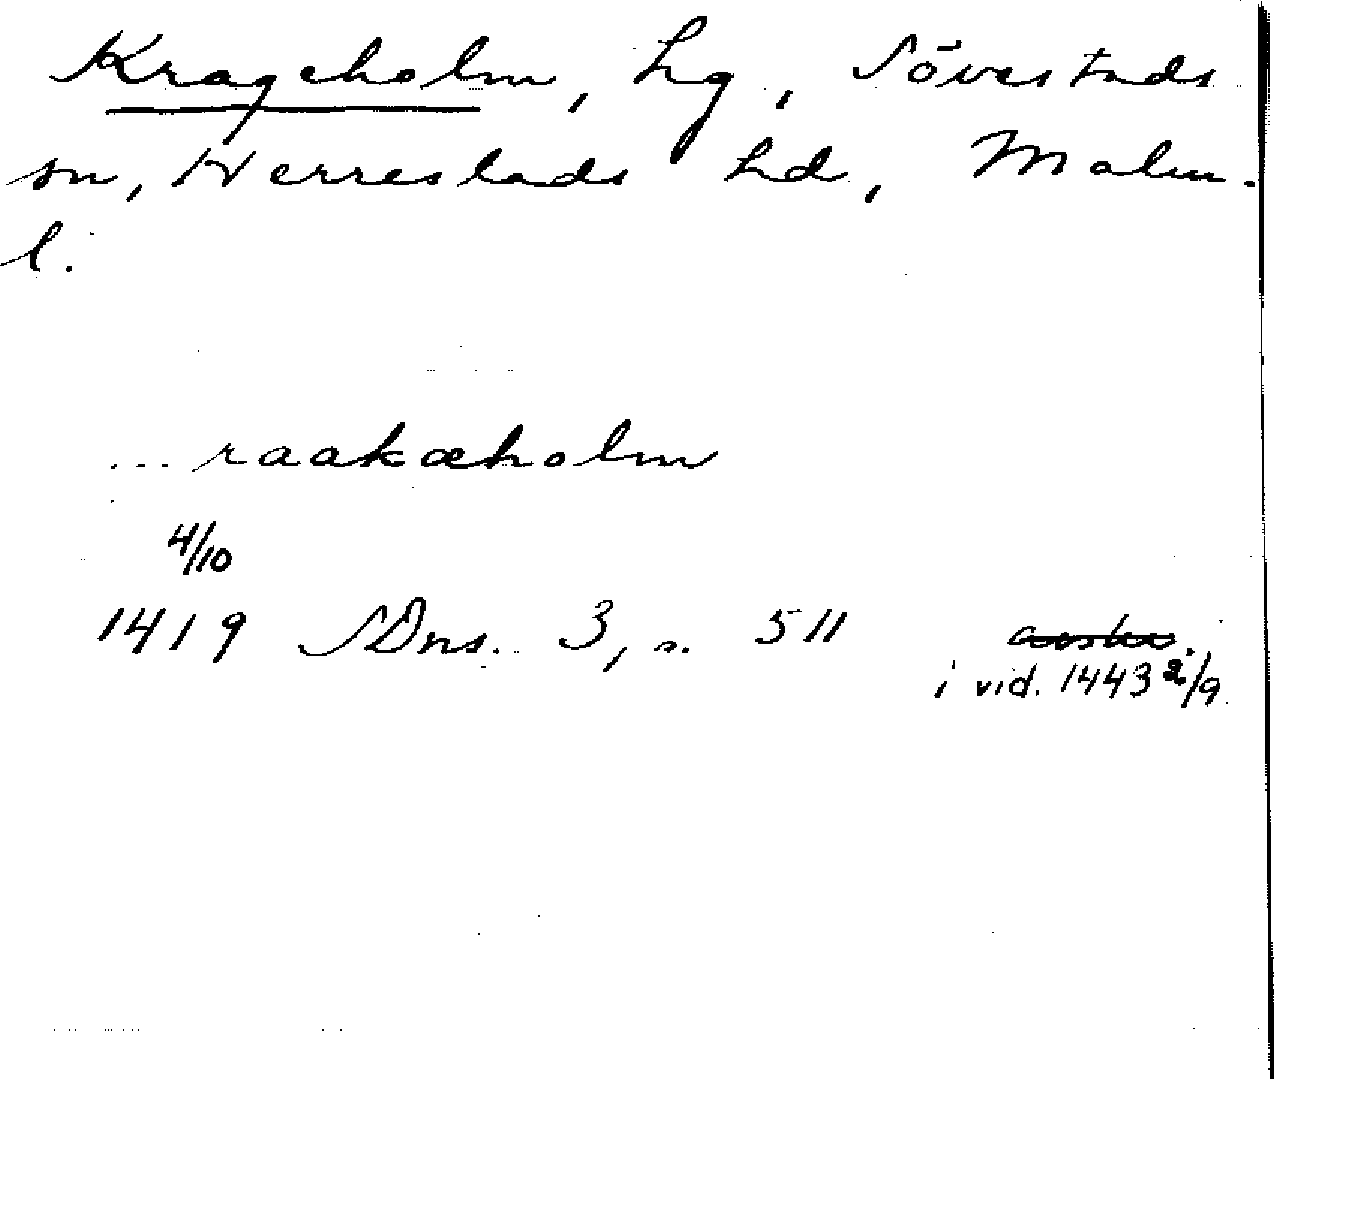 Krageholm, hg, Sövestads
sn, Herrestads hd, Malm.
l.
... raakæholm
4/10
1419 SDns. 3, s. 511
i vid. 1443 2/9